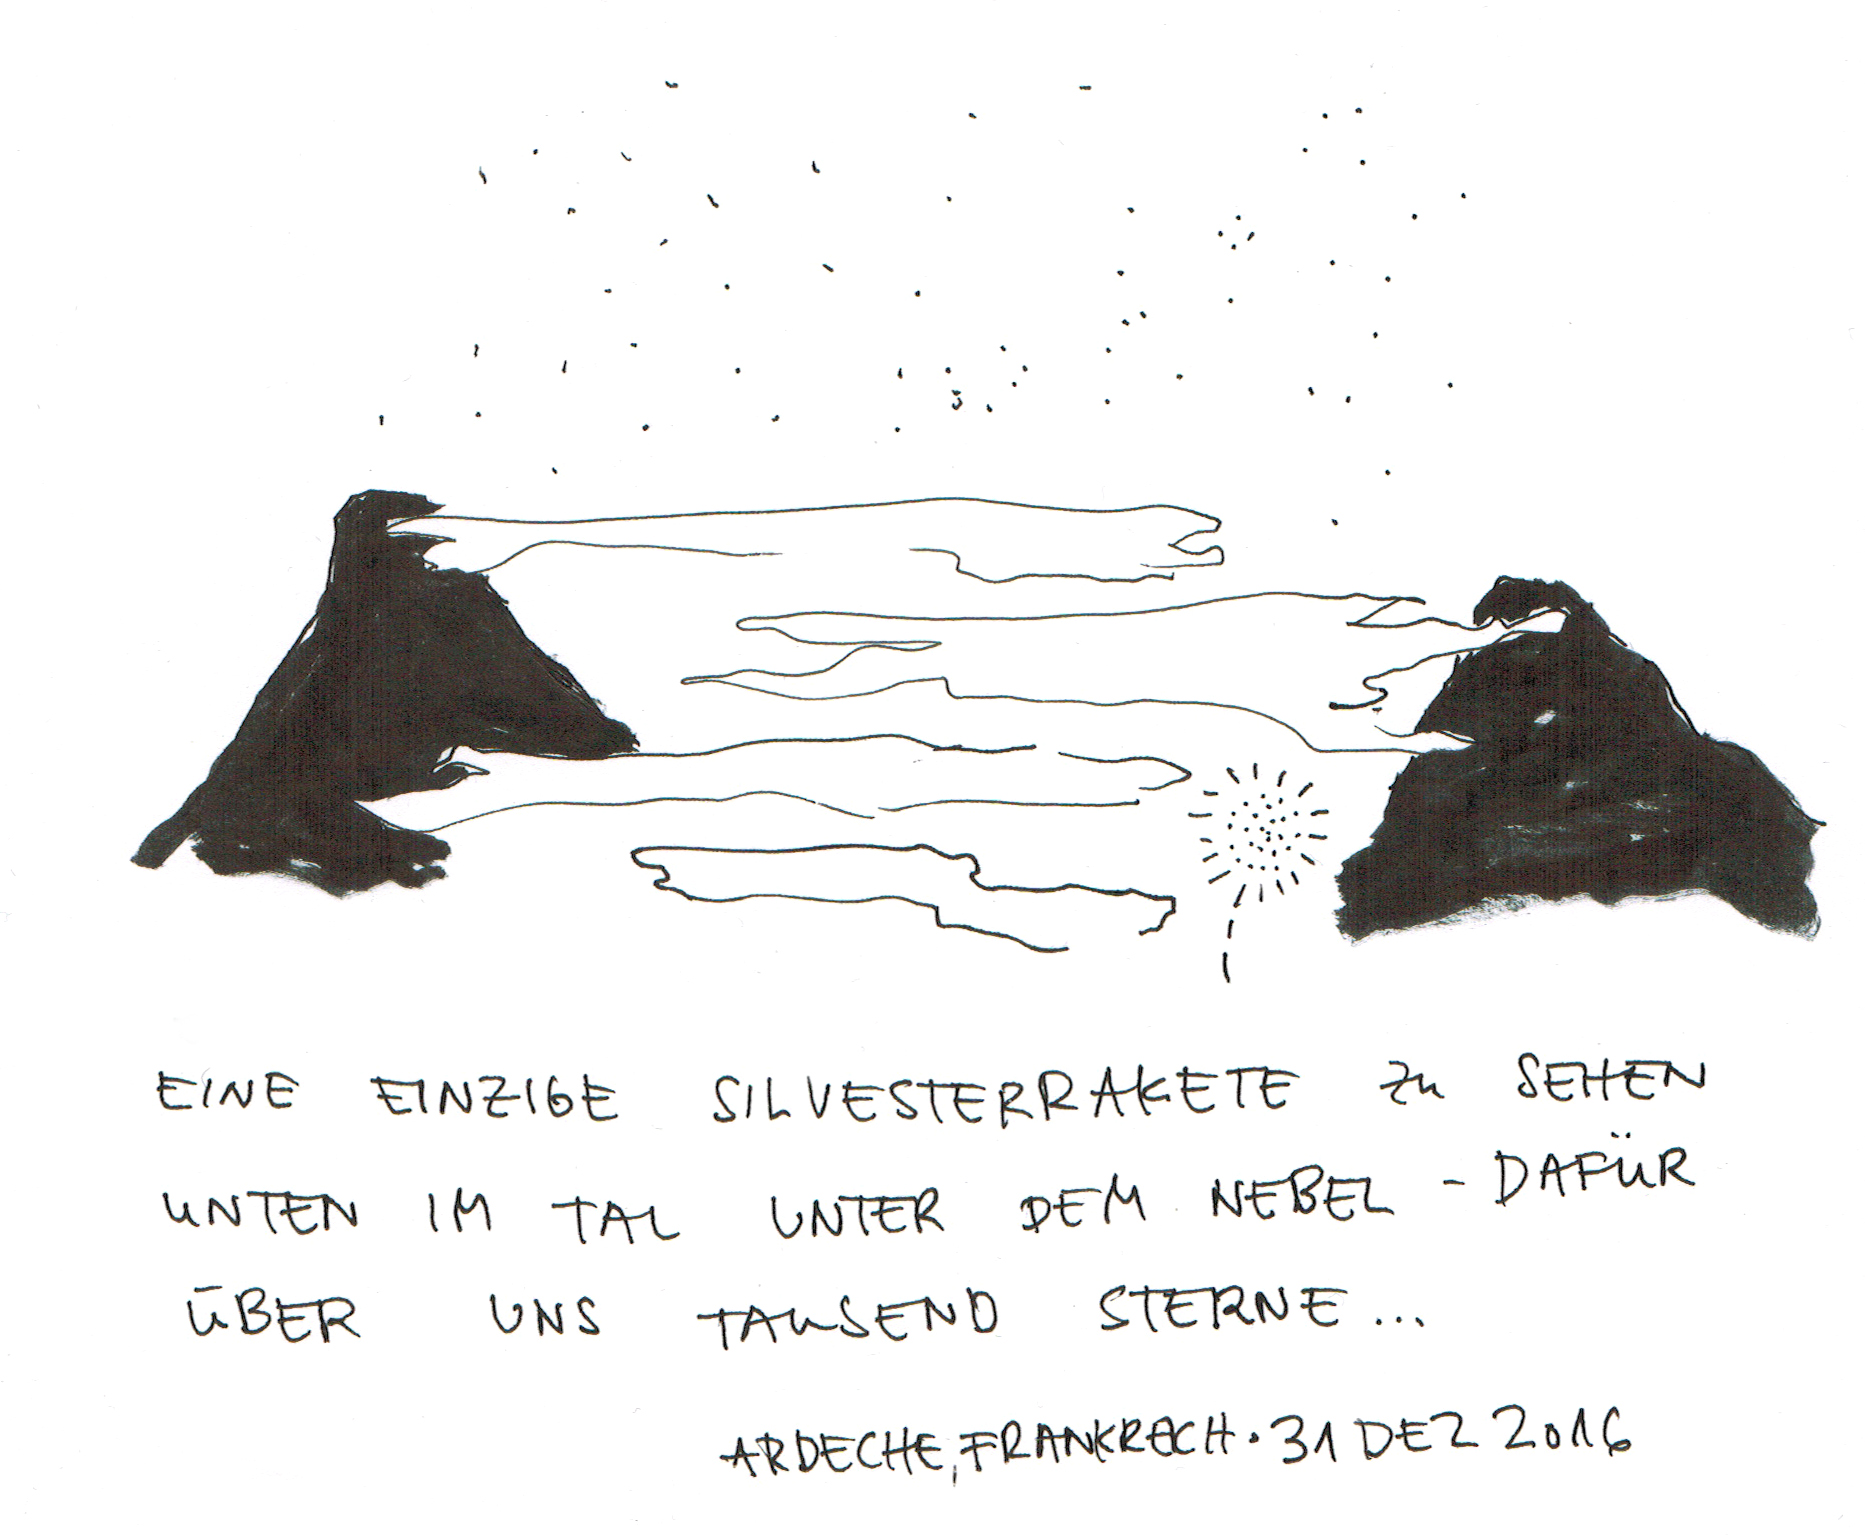 EINE EINZIGE SILVESTERRAKETE ZU SEHEN
UNTEN IM TAL UNTER DEM NEBEL - DAFÜR
ÜBER UNS TAUSEND STERNE...
ARDECHE, FRANKREICH · 31 DEZ 2016